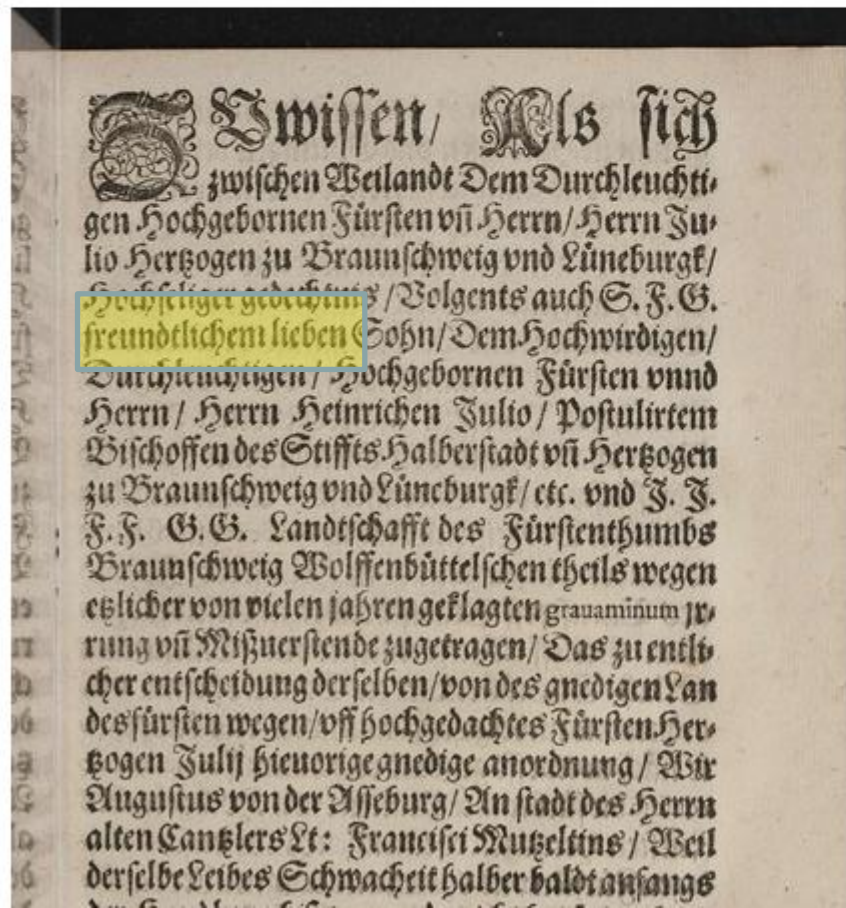 ZUwissen/ Als sich
zwischen Weilandt Dem Durchleuchti-
gen Hochgebornen Fürsten vn̄ Herrn/ Herrn Ju-
lio Hertzogen zu Braunschweig vnd Lüneburgk/
Hochseliger gedechtnis / Volgents auch S. F. G.
freundtlichem lieben Sohn/ Dem Hochwirdigen/
Durchleuchtigen / Hochgebornen Fürsten vnnd
Herrn / Herrn Heinrichen Julio / Postulirtem
Bischoffen des Stiffts Halberstadt vn̄ Hertzogen
zu Braunschweig vnd Lüneburgk/ etc. vnd J. J.
F. F. G. G. Landtschafft des Fürstenthumbs
Braunschweig Wolffenbüttelschen theils wegen
etzlicher von vielen jahren geklagten grauaminum jr-
rung vn̄ Mißuerstende zugetragen/ Das zu entli-
cher entscheidung derselben/ von des gnedigen Lan
desfürsten wegen/ vff hochgedachtes Fürsten Her-
tzogen Julij hieuorige gnedige anordnung / Wir
Augustus von der Asseburg/ An stadt des Herrn
alten Cantzlers Lt: Francisci Mutzeltins / Weil
derselbe Leibes Schwacheit halber baldt anfangs